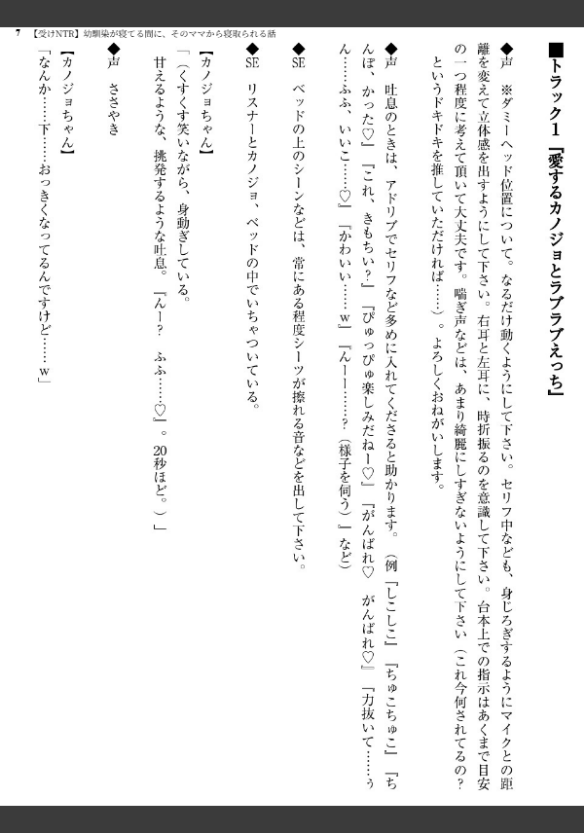 7　【受けNTR】幼馴染が寝てる間に、そのママから寝取られる話
■トラック1「愛するカノジョとラブラブえっち」
◆声　※ダミーヘッド位置について。なるだけ動くようにして下さい。セリフ中なども、身じろぎするようにマイクとの距
離を変えて立体感を出すようにして下さい。右耳と左耳に、時折振るのを意識して下さい。台本上での指示はあくまで目安
の一つ程度に考えて頂いて大丈夫です。喘ぎ声などは、あまり綺麗にしすぎないようにして下さい（これ今何されてるの？
というドキドキを推していただければ……）。よろしくおねがいします。
◆声　吐息のときは、アドリブでセリフなど多めに入れてくださると助かります。（例『しこしこ』『ちゅこちゅこ』『ち
んぽ、かった♡』『これ、きもちい？』『ぴゅっぴゅ楽しみだねー♡』『がんばれ♡　がんばれ♡』『力抜いて……ぅ
ん……ふふ、いいこ……♡』『かわいい……ｗ』『んーー……？（様子を伺う）』など）
◆SE　ベッドの上のシーンなどは、常にある程度シーツが擦れる音などを出して下さい。
◆SE　リスナーとカノジョ、ベッドの中でいちゃついている。
【カノジョちゃん】
「（くすくす笑いながら、身動ぎしている。
甘えるような、挑発するような吐息。『んー？　ふふ……♡』。20秒ほど。）」
◆声　ささやき
【カノジョちゃん】
「なんか……下……おっきくなってるんですけど……ｗ」